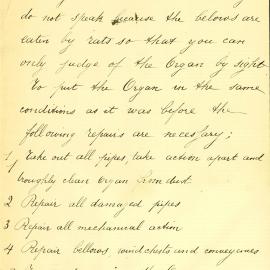 do not speak because the belows are
eaten by rats so that you can
only judge of the Organ by sight
To put the Organ in the same
conditions as it was before the
following repairs are necessary;
1/ Take out all pipes, take action apart and
troughly clean organ from dust
2 Repair all damaged pipes
3 Repair all mechanical action
4 Repair bellows windchests and conveyances